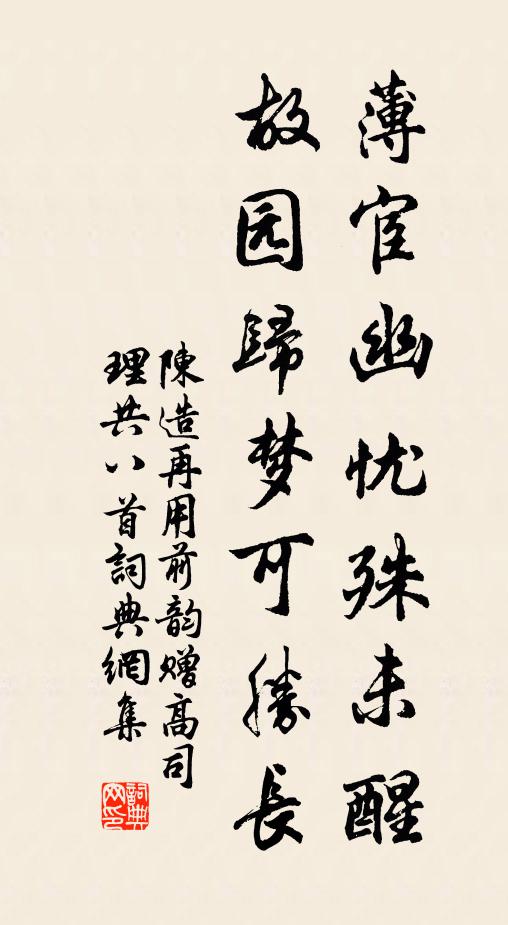 薄宦幽忧殊未醒
故园歸梦可勝長
陳造再用前韵赠高司
理共八首詞典網集
詞典网印